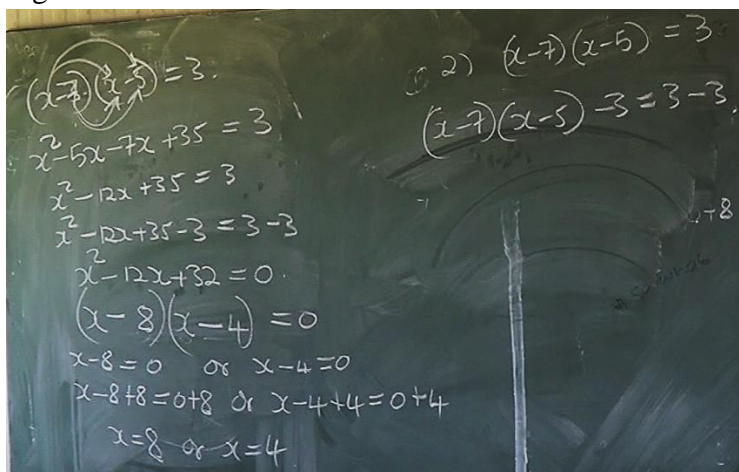 (x-7)(x-5) = 3.
x²-5x-7x+35 = 3
x²-12x+35 = 3
x²-12x+35-3 = 3-3
x²-12x+32 = 0.
(x-8)(x-4) = 0
x-8=0 or x-4=0
x-8+8=0+8 or x-4+4=0+4
x=8 or x=4
2) (x-7)(x-5) = 3
(x-7)(x-5)-3=3-3.
+8